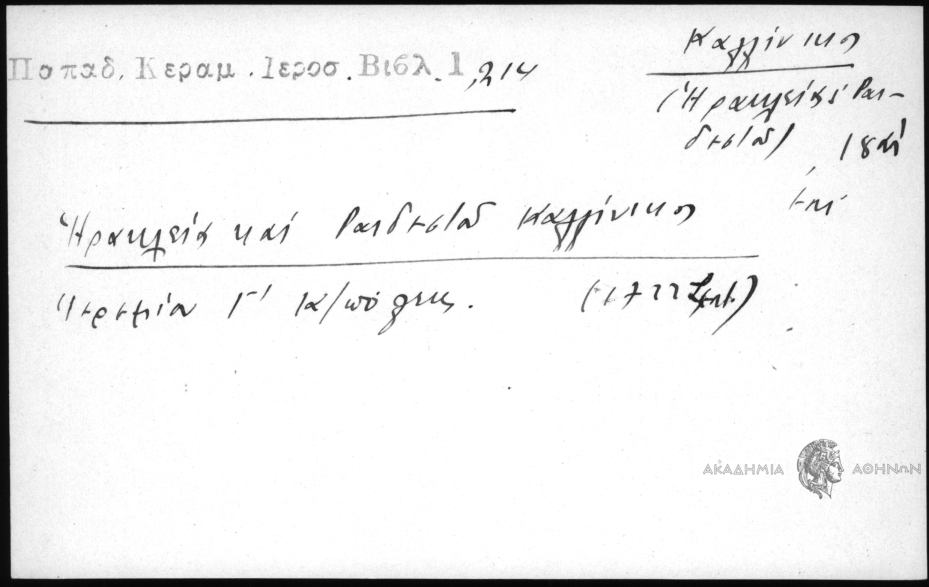 Παπαδ. Κεραμ. Ιεροσ. Βιβλ. 1, 214
Καλλίνικος
(Ἡρακλείας καὶ Ραι-
δεστοῦ) 18 αἰ
Ἡρακλείας καὶ Ραιδεστοῦ Καλλίνικος ἐπὶ
Ἱερεμίου Γ' Κ/πόλεως. (1722
ΑΚΑΔΗΜΙΑ ΑΘΗΝΩΝ